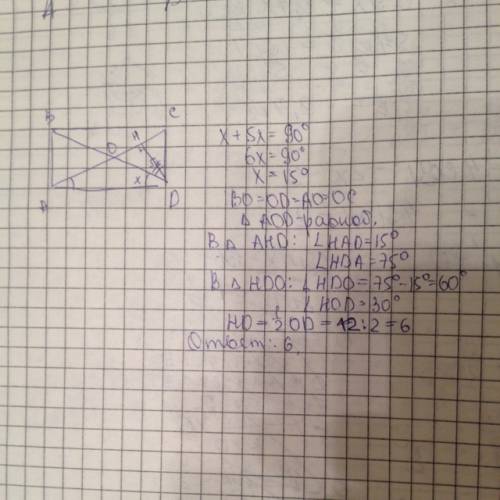 B
C
H
O
5x
x
A
D
x + 5x = 90°
6x = 90°
x = 15°
BO = OD = AO = OC
△ AOD - равноб.
В △ AHD: ∠HAD = 15°
∠HDA = 75°
В △ HDO: ∠HDO = 75° - 15° = 60°
∠HOD = 30°
HD = ½ OD = 12 : 2 = 6
Ответ: 6.